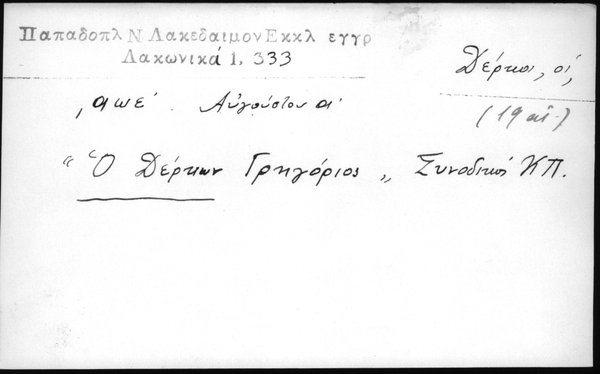 Παπαδοπλ Ν Λακεδαιμον Εκκλ εγγρ
Λακωνικά 1, 333
Δέρκοι, οἱ,
(19 αἰ.)
͵αωε΄. Αὐγούστου α΄
“Ὁ Δέρκων Γρηγόριος„ Συνοδικός ΚΠ.